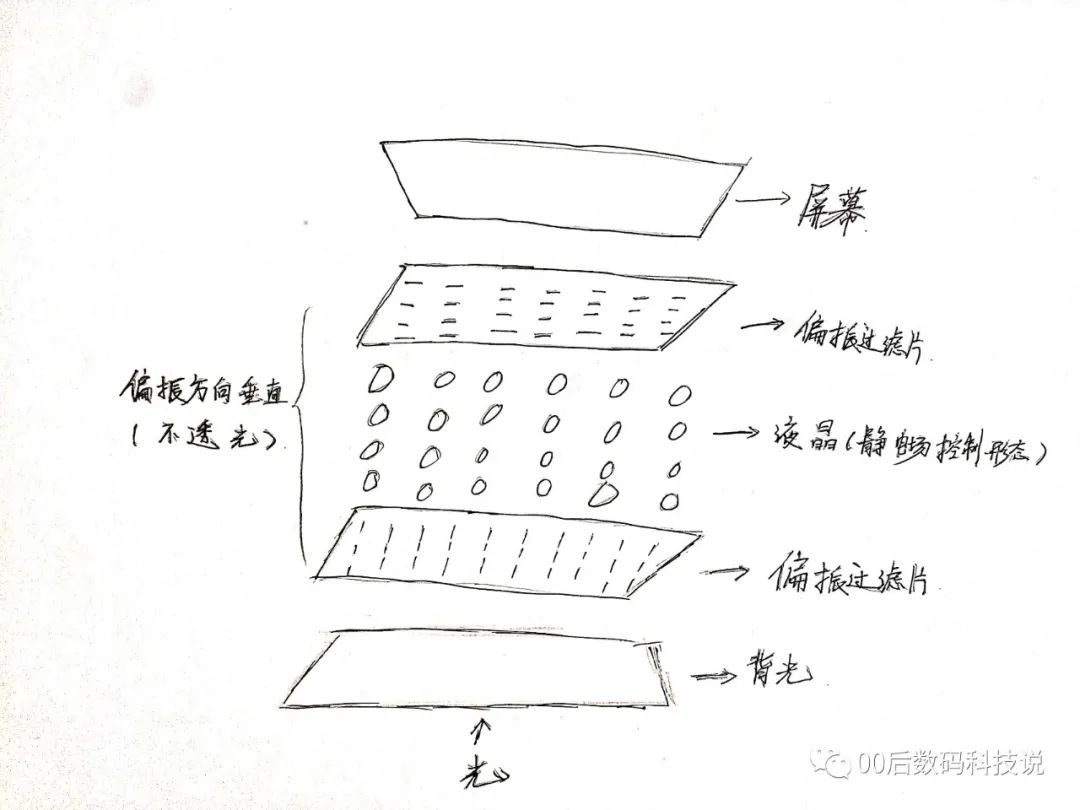 屏幕
偏振过滤片
偏振方向垂直
(不透光)
液晶(静电场控制形态)
偏振过滤片
背光
光
00后数码科技说